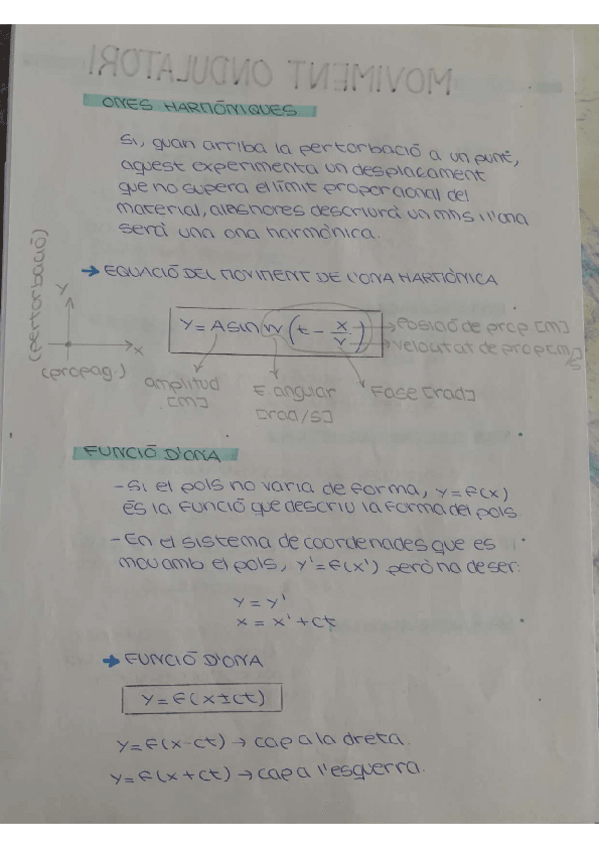 MOVIMENT ONDULATORI
ONES HARMÒNIQUES
Si, quan arriba la pertorbació a un punt,
aquest experimenta un desplaçament
que no supera el límit proporcional del
material, aleshores descriurà un mhs i l'ona
serà una ona harmònica.
→ EQUACIÓ DEL MOVIMENT DE L'ONA HARMÒNICA
(pertorbació)
y
x
(propag.)
y = A sin w (t - x/v)
Posició de prop [m]
velocitat de prop [m/s]
amplitud
[m]
F. angular
[rad/s]
Fase [rad]
FUNCIÓ D'ONA
- Si el pols no varia de forma, y = f(x)
és la funció que descriu la forma del pols
- En el sistema de coordenades que es
mou amb el pols, y' = f(x') però ha de ser:
y = y'
x = x' + ct
→ FUNCIÓ D'ONA
y = f(x ± ct)
y = f(x - ct) → cap a la dreta.
y = f(x + ct) → cap a l'esquerra.